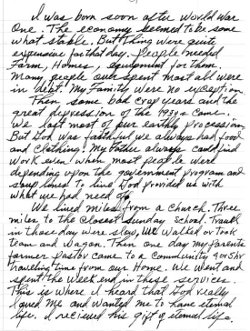 I was born soon after World War
One. The economy seemed to be some
what stable. But things were quite
expensive for that day. People needed
Farm, Homes, equipment for them.
Many people over spent most all were
in debt. My Family were no exception.
Then some bad crop years and the
great depression of the 1930's came.
We lost most of our earthly possession,
But God was faithful we always had food
and clothing! My Father always could find
work even when most people were
depending upon the government program and
soup lines to live, God provided us with
what we had need of.
We lived miles from a Church. Three
miles to the closest Sunday School. Travel
in those day were slow, we Walked or took
team and Wagon. Then one day my parents
former pastor came to a Community 4 or 5 hr
traveling time from our Home. We went and
spent the week end in these services.
This is where I heard that God really
loved Me and Wanted me to have eternal
life. I recieved this gift of eternal life.